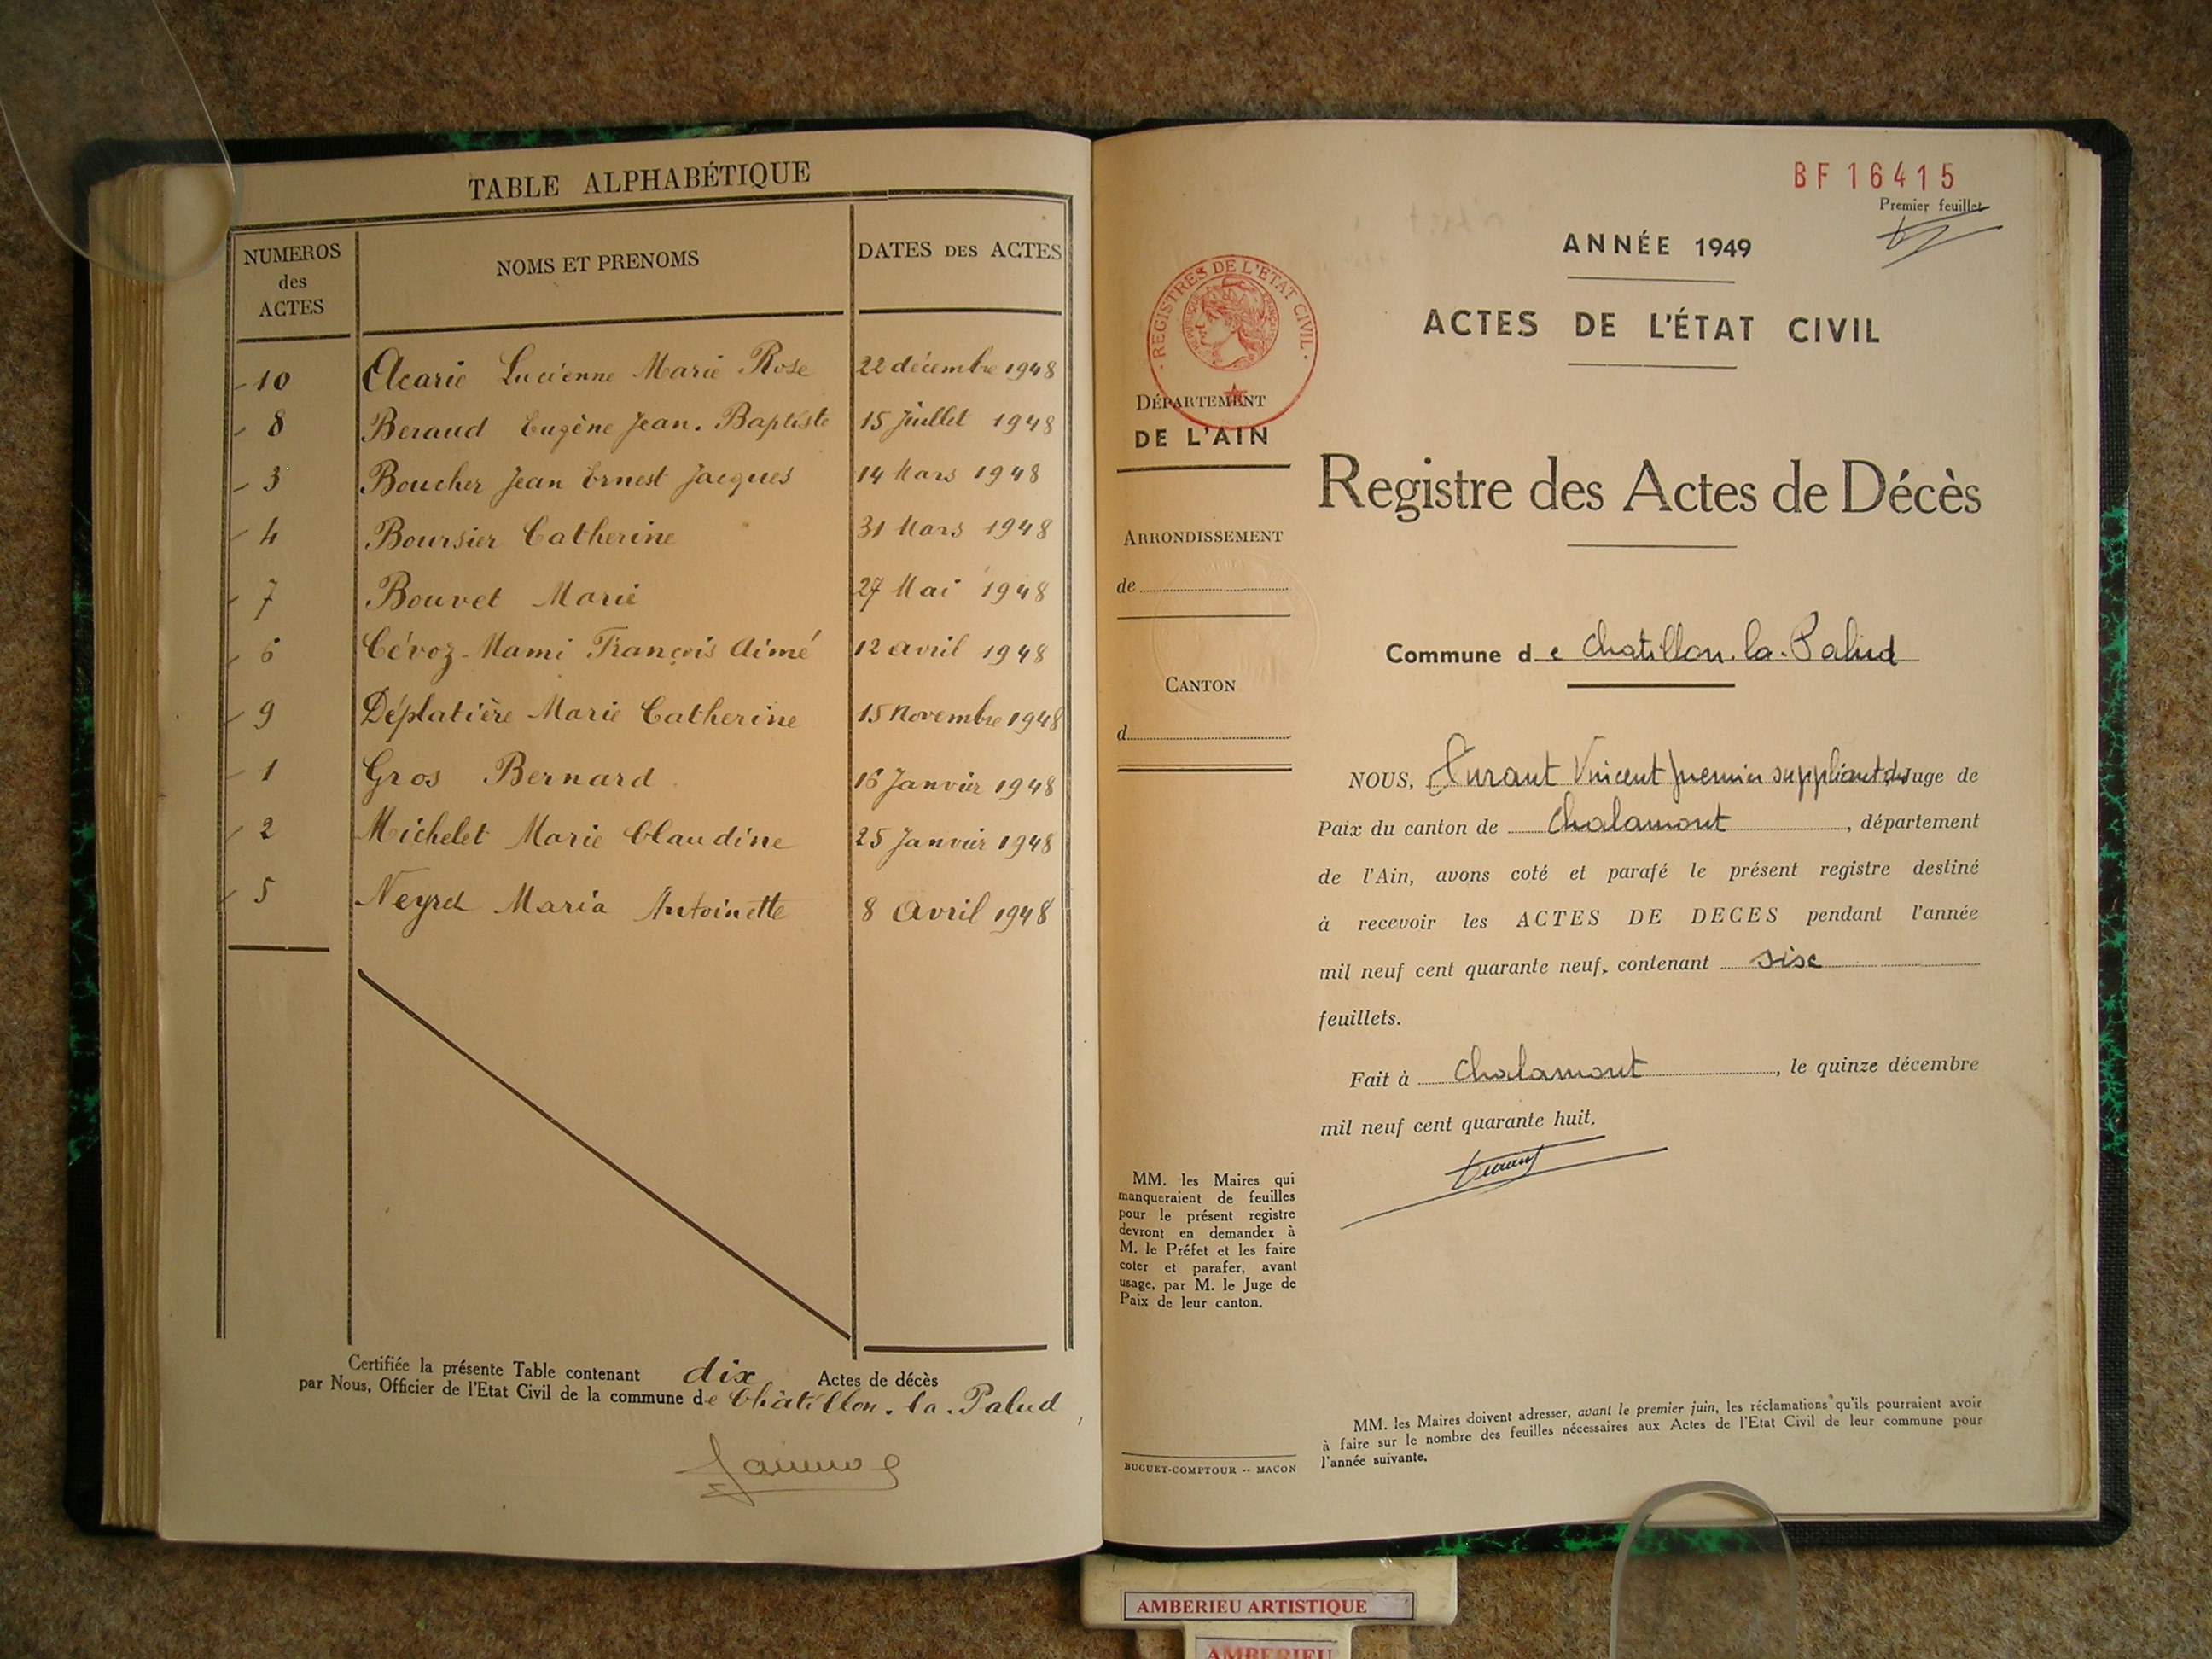 TABLE ALPHABÉTIQUE
NUMEROS des ACTES NOMS ET PRENOMS DATES DES ACTES
10 Acarie Lucienne Marie Rose 22 décembre 1948
8 Beraud Eugène Jean. Baptiste 15 Juillet 1948
3 Boucher Jean Ernest Jacques 14 Mars 1948
4 Boursier Catherine 31 Mars 1948
7 Bouvet Marie 27 Mai 1948
6 Cévoz-Mami François Aimé 12 avril 1948
9 Déplatière Marie Catherine 15 Novembre 1948
1 Gros Bernard 16 Janvier 1948
2 Michelet Marie Claudine 25 Janvier 1948
5 Neyret Maria Antoinette 8 Avril 1948
Certifiée la présente Table contenant dix Actes de décès
par Nous, Officier de l'Etat Civil de la commune de Châtillon. la. Palud
BF16415
Premier feuillet
ANNÉE 1949
ACTES DE L'ÉTAT CIVIL
REGISTRES DE L'ETAT CIVIL
DÉPARTEMENT
DE L'AIN
Registre des Actes de Décès
ARRONDISSEMENT
de
Commune de Chatillon. la. Palud
CANTON
d
NOUS, Vincent premier suppliant du Juge de
Paix du canton de Chalamont, département
de l'Ain, avons coté et parafé le présent registre destiné
à recevoir les ACTES DE DECES pendant l'année
mil neuf cent quarante neuf, contenant sise
feuillets.
Fait à Chalamont, le quinze décembre
mil neuf cent quarante huit.
MM. les Maires qui
manqueraient de feuilles
pour le présent registre
devront en demander à
M. le Préfet et les faire
coter et parafer, avant
usage, par M. le Juge de
Paix de leur canton.
MM. les Maires doivent adresser, avant le premier juin, les réclamations qu'ils pourraient avoir
à faire sur le nombre des feuilles nécessaires aux Actes de l'Etat Civil de leur commune pour
l'année suivante.
BUGUET-COMPTOUR -- MACON
AMBERIEU ARTISTIQUE
AMBERIEU